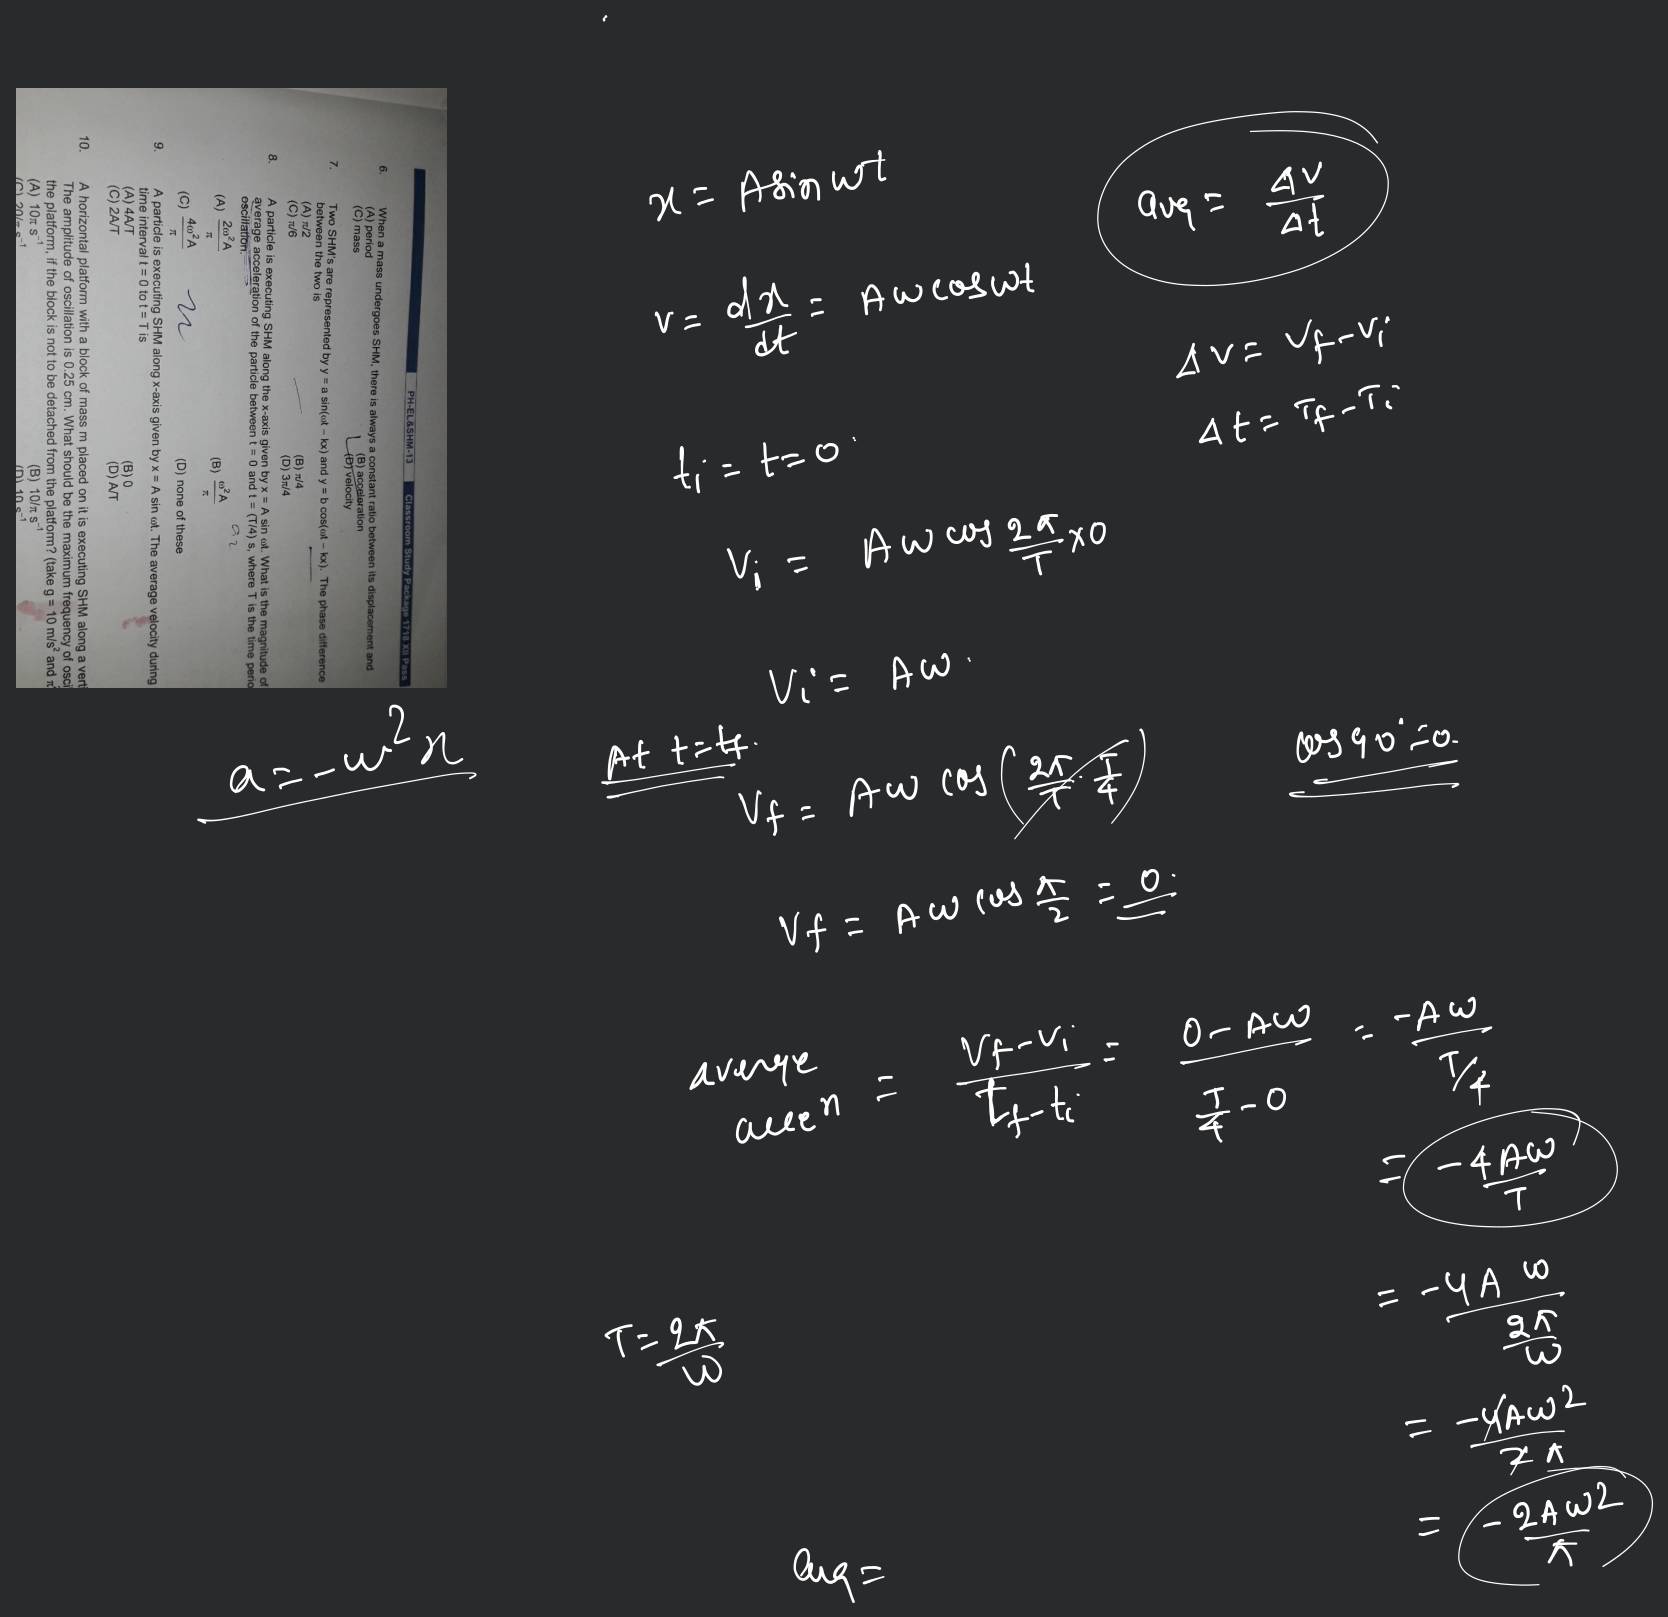 PH-EL&SHM-13 Classroom Study Package 1718 XII Pass
6. When a mass undergoes SHM, there is always a constant ratio between its displacement and
(A) period (B) acceleration
(C) mass (D) velocity
7. Two SHM's are represented by y = a sin(ωt – kx) and y = b cos(ωt – kx). The phase difference
between the two is
(A) π/2 (B) π/4
(C) π/6 (D) 3π/4
8. A particle is executing SHM along the x-axis given by x = A sin ωt. What is the magnitude of
average acceleration of the particle between t = 0 and t = (T/4) s, where T is the time perio
oscillation.
(A) 2ω²A/π (B) ω²A/π
(C) 4ω²A/π (D) none of these
9. A particle is executing SHM along x-axis given by x = A sin ωt. The average velocity during
time interval t = 0 to t = T is
(A) 4A/T (B) 0
(C) 2A/T (D) A/T
10. A horizontal platform with a block of mass m placed on it is executing SHM along a vert
The amplitude of oscillation is 0.25 cm. What should be the maximum frequency of osci
the platform, if the block is not to be detached from the platform? (take g = 10 m/s² and π
(A) 10π s⁻¹ (B) 10/π s⁻¹
(C) 20/π s⁻¹ (D) 10 s⁻¹
a = -w²x
x = A sin wt
v = dx/dt = Aw cos wt
ti = t = 0
Vi = Aw cos 2π/T × 0
Vi = Aw
At t = tf
Vf = Aw cos (2π/T · T/4)
Vf = Aw cos π/2 = 0
avg = Δv/Δt
Δv = Vf - Vi
Δt = Tf - Ti
cos 90° = 0
average accen = Vf - Vi / Tf - ti = 0 - Aw / T/4 - 0 = -Aw / T/4
= -4Aw/T
T = 2π/w
= -4Aw / 2π/w
= -4Aw² / 2π
= -2Aw²/π
avg =